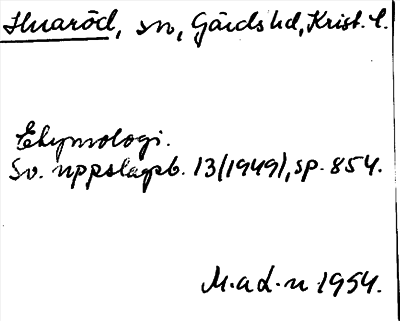 Huaröd, sn, Gärds hd, Krist. l.
Etymologi.
Sv. uppslagsb. 13 (1949), sp. 854.
M.a.d.n. 1954.